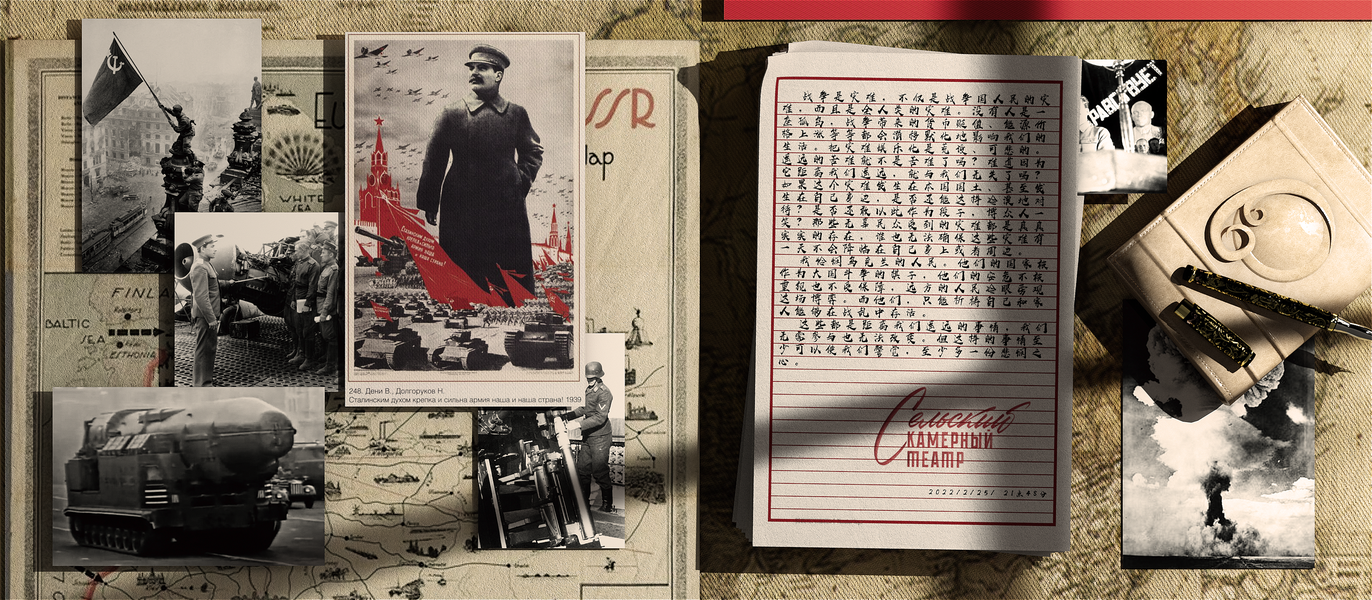 SSR
Map
WHITE
SEA
FINLA
BALTIC
SEA
ESTHONIA
Сталинским духом
крепка и сильна
армия наша
и наша страна!
248. Дени В., Долгоруков Н.
Сталинским духом крепка и сильна армия наша и наша страна! 1939
战争是灾难，不仅是战争国人民的灾
难，而且是全人类的灾难。没有人是一
座孤岛，战争带来的货币贬值，能源价
格上涨等等都会潜移默化地影响我们的
生活。把灾难娱乐化是 可悲的。
遥远的苦难就不是苦难了吗？难道因为
它距离我们遥远，就与我们无关了吗？
如果这个灾难发生在本国国土，甚至发
生在自己身边，是否还能这样漠然地对
待？是否还敢以此作为段子，博众人一
笑？那些无辜民众受到的灾难都是真真
实实的存在，谁也无法确保这些灾难有
一天不会降临在自己身上或者周边。
我怜悯乌克兰的人民，他们的国家被
作为大国斗争的棋子，他们的安危不被
重视也不受保障，远方的人民冷眼旁观
这场博弈。而他们，只能祈祷自己和家
人能够在战乱中存活。
这些都是距离我们遥远的事情，我们
无需参与也无法改变。但这样的事情至
少可以使我们警觉，至少多一份悲悯之
心。
Сельский
КАМЕРНЫЙ
ТЕАТР
2022/2/25/ 21点48分